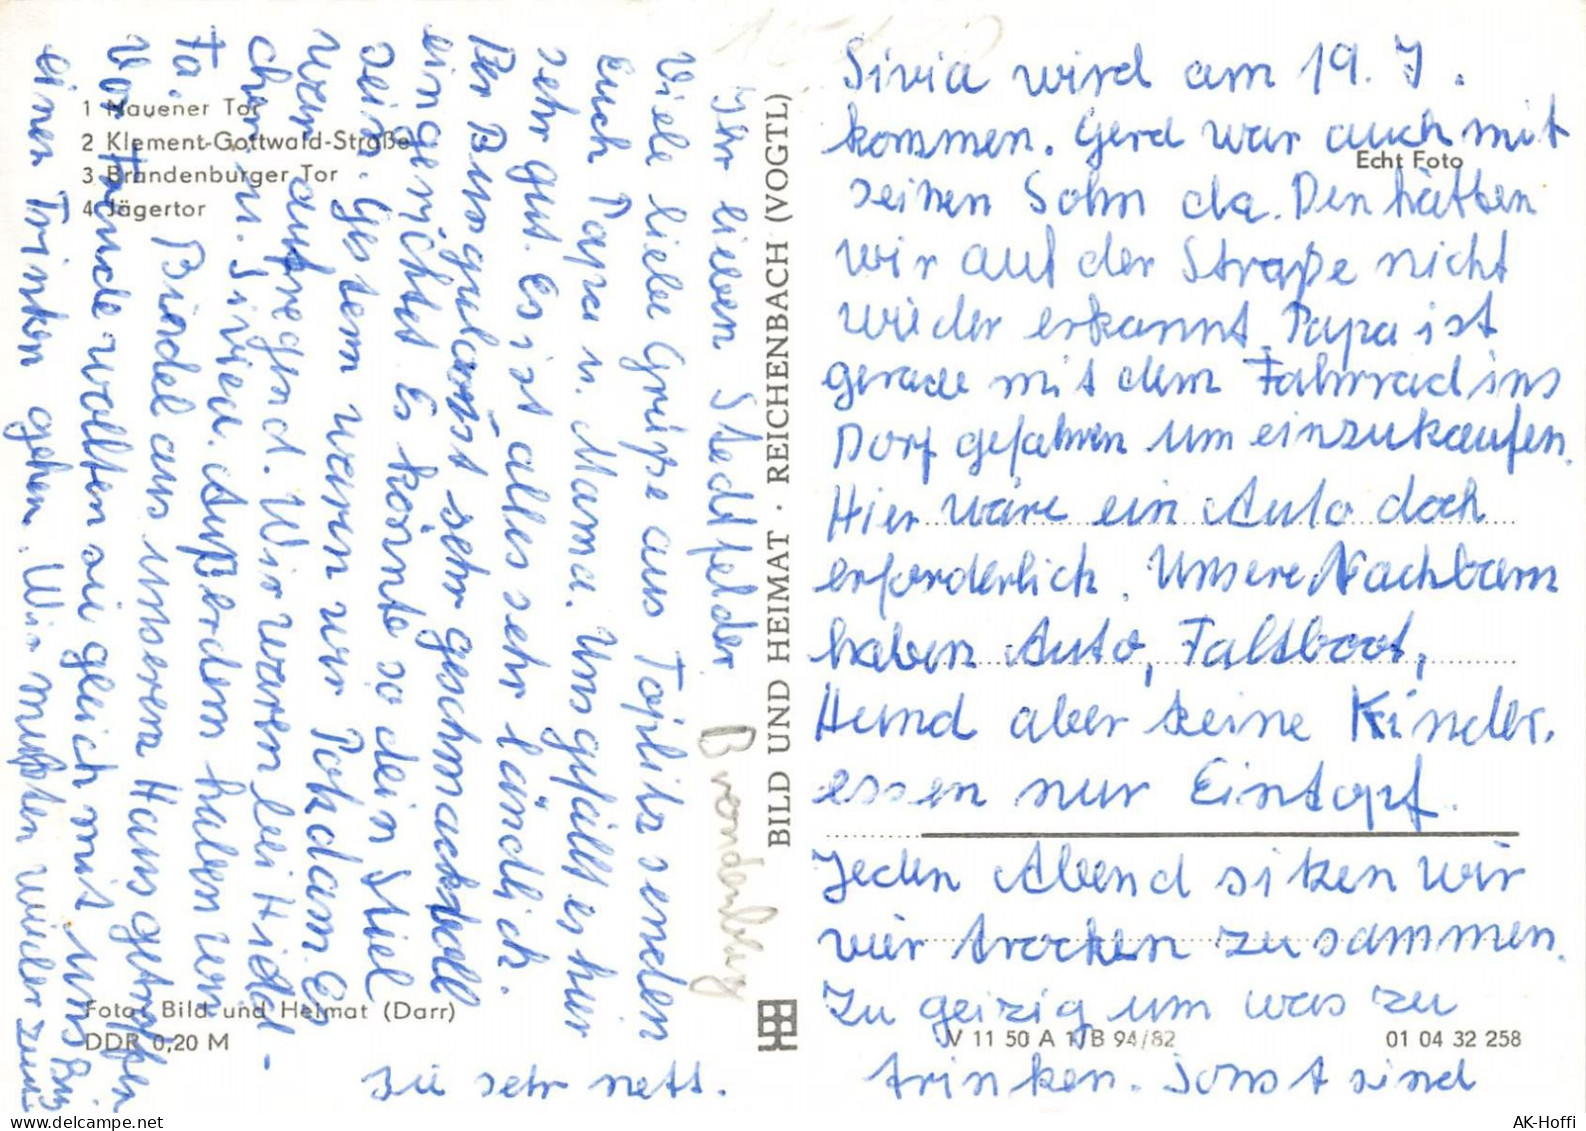 1 Nauener Tor
2 Klement-Gottwald-Straße
3 Brandenburger Tor
4 Jägertor
Foto: Bild und Heimat (Darr)
DDR 0,20 M
BILD UND HEIMAT · REICHENBACH (VOGTL)
Echt Foto
V 11 50 A 1/B 94/82
01 04 32 258
Brandenburg
Ihr lieben Stedtfelder
Viele liebe Grüße aus Töplitz senden
Euch Papa u. Mama. Uns gefällt es hier
sehr gut. Es ist alles sehr ländlich.
Der Bungalow ist sehr geschmackvoll
eingerichtet. Es könnte so dein Stiel
sein. Gestern waren wir Potsdam. Es
war aufregend. Wir waren bei Hidd-
chen u. Sivia. Außerdem haben wir
Fa. Bindel aus unserem Haus getroffen
Vor Freude wollten sie gleich mit uns
einen Trinken gehen. Wir mußten wieder zum
Sivia wird am 19. 7.
kommen. Gerd war auch mit
seinen Sohn da. Den hätten
wir auf der Straße nicht
wieder erkannt. Papa ist
gerade mit dem Fahrrad ins
Dorf gefahren um einzukaufen.
Hier wäre ein Auto doch
erforderlich. Unsere Nachbarn
haben Auto, Faltboot,
Hund aber keine Kinder.
essen nur Eintopf.
Jeden Abend sitzen wir
vier trocken zusammen.
Zu geizig um was zu
trinken. Sonst sind
sie sehr nett.
AK-Hoffi